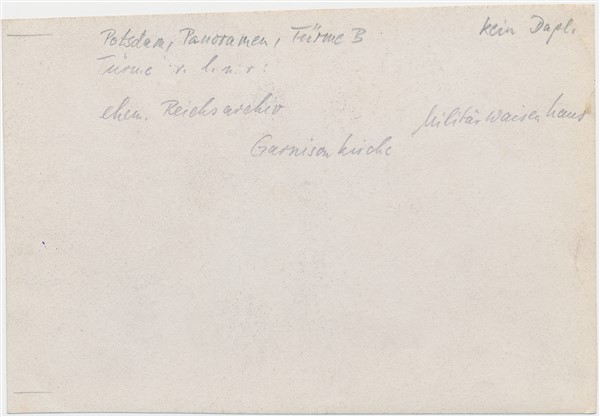 Potsdam, Panoramen, Türme B
kein Dapl.
Türme v. l. n. r:
ehem. Reichsarchiv
Militärwaisenhaus
Garnisonkirche